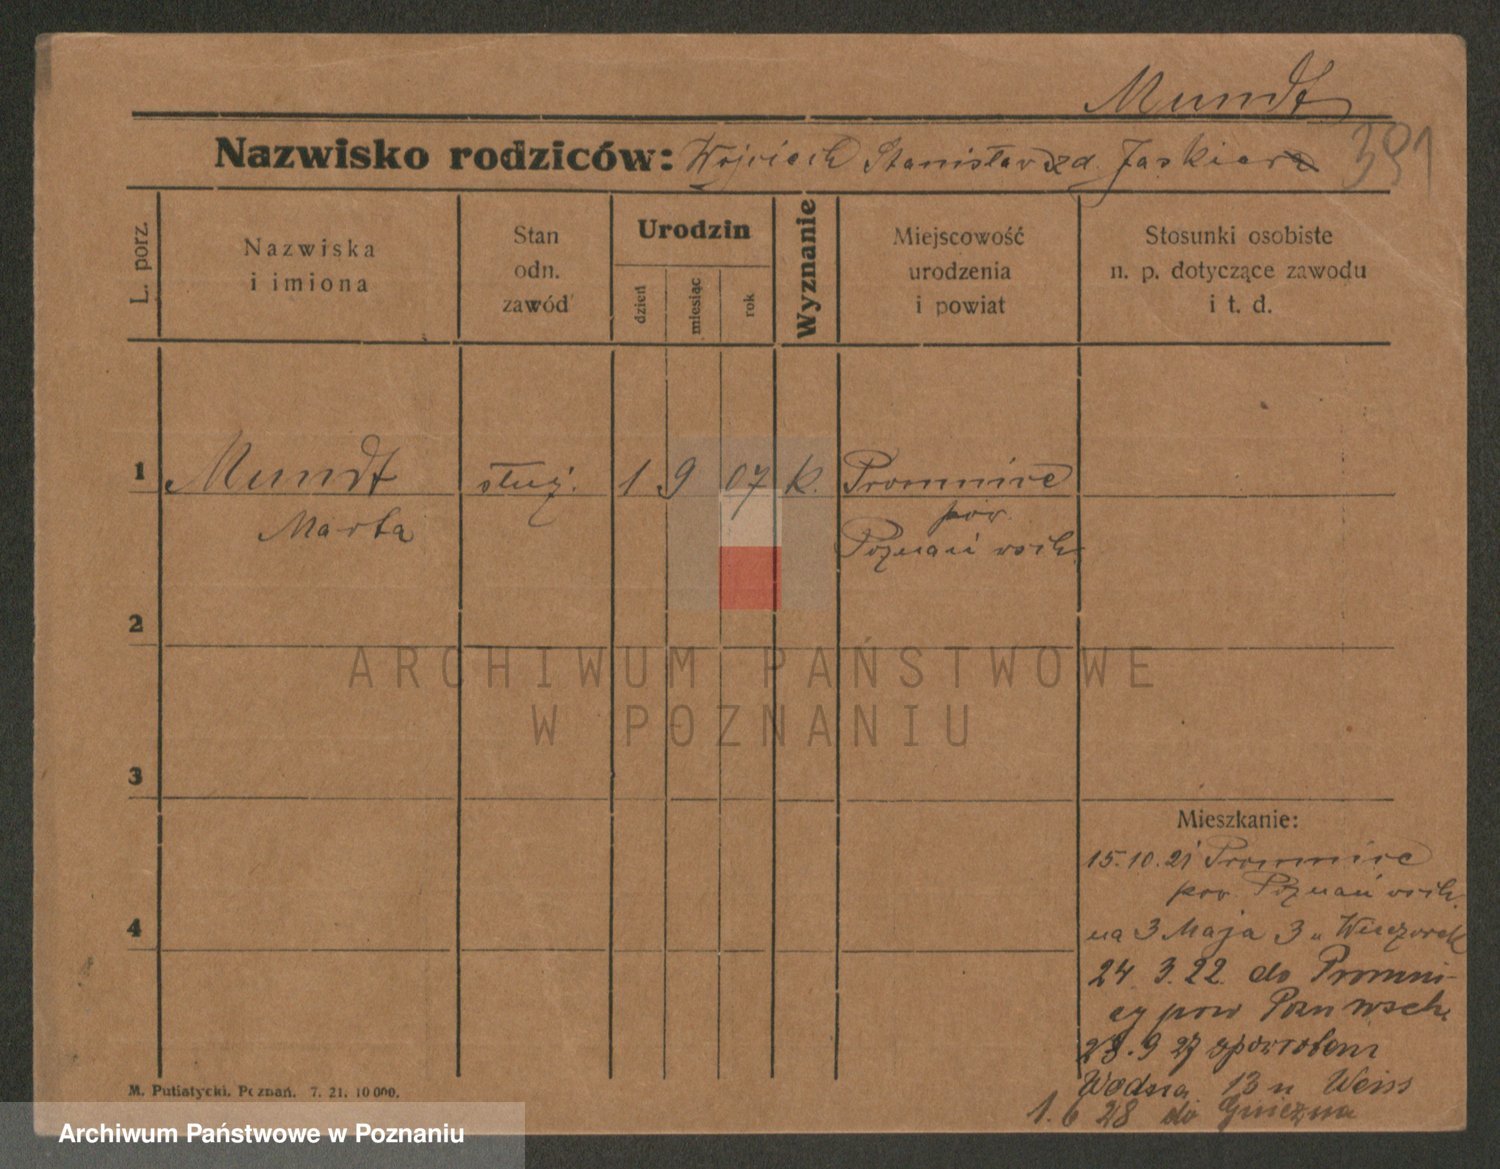 Mundt
Nazwisko rodziców: Wojciech Stanisława zd Jaskier
391
L. porz.
Nazwiska
i imiona
Stan
odn.
zawód
Urodzin
dzień
miesiąc
rok
Wyznanie
Miejscowość
urodzenia
i powiat
Stosunki osobiste
n. p. dotyczące zawodu
i t. d.
1 Mundt służ. 1 9 07 k. Promnice
Marta pow.
Poznań wsch.
2
ARCHIWUM PAŃSTWOWE
W POZNANIU
3
Mieszkanie:
15.10.21 Promnice
pow. Poznań wsch.
4
na 3 Maja 3 u Wieczorek
24. 3. 22. do Promni-
cy pow Pozn wsch.
23. 9 27 zpowrotem
Wodna 13 u Weiss
1. 6 28 do Gniezna
M. Putiatycki, Poznań. 7. 21. 10 000.
Archiwum Państwowe w Poznaniu